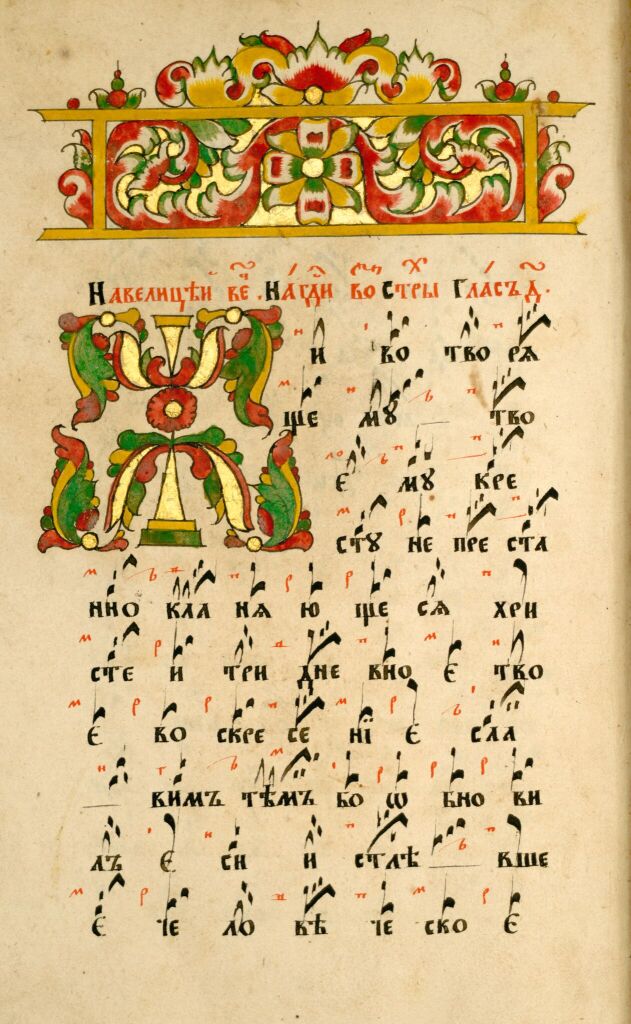 Навелицѣй ве҃ч . На гд҇и востры Гласъ д҃ .
Жи во тво ря
ще мꙋ тво
є мꙋ кре
стꙋ не пре ста
нно кла ня ю ще ся хри
сте и три дне вно є тво
є во скре се нїє сла
вимъ тѣмъ бо ѡ бно ви
лъ є си и стлѣ вше
є че ло вѣ че ско є